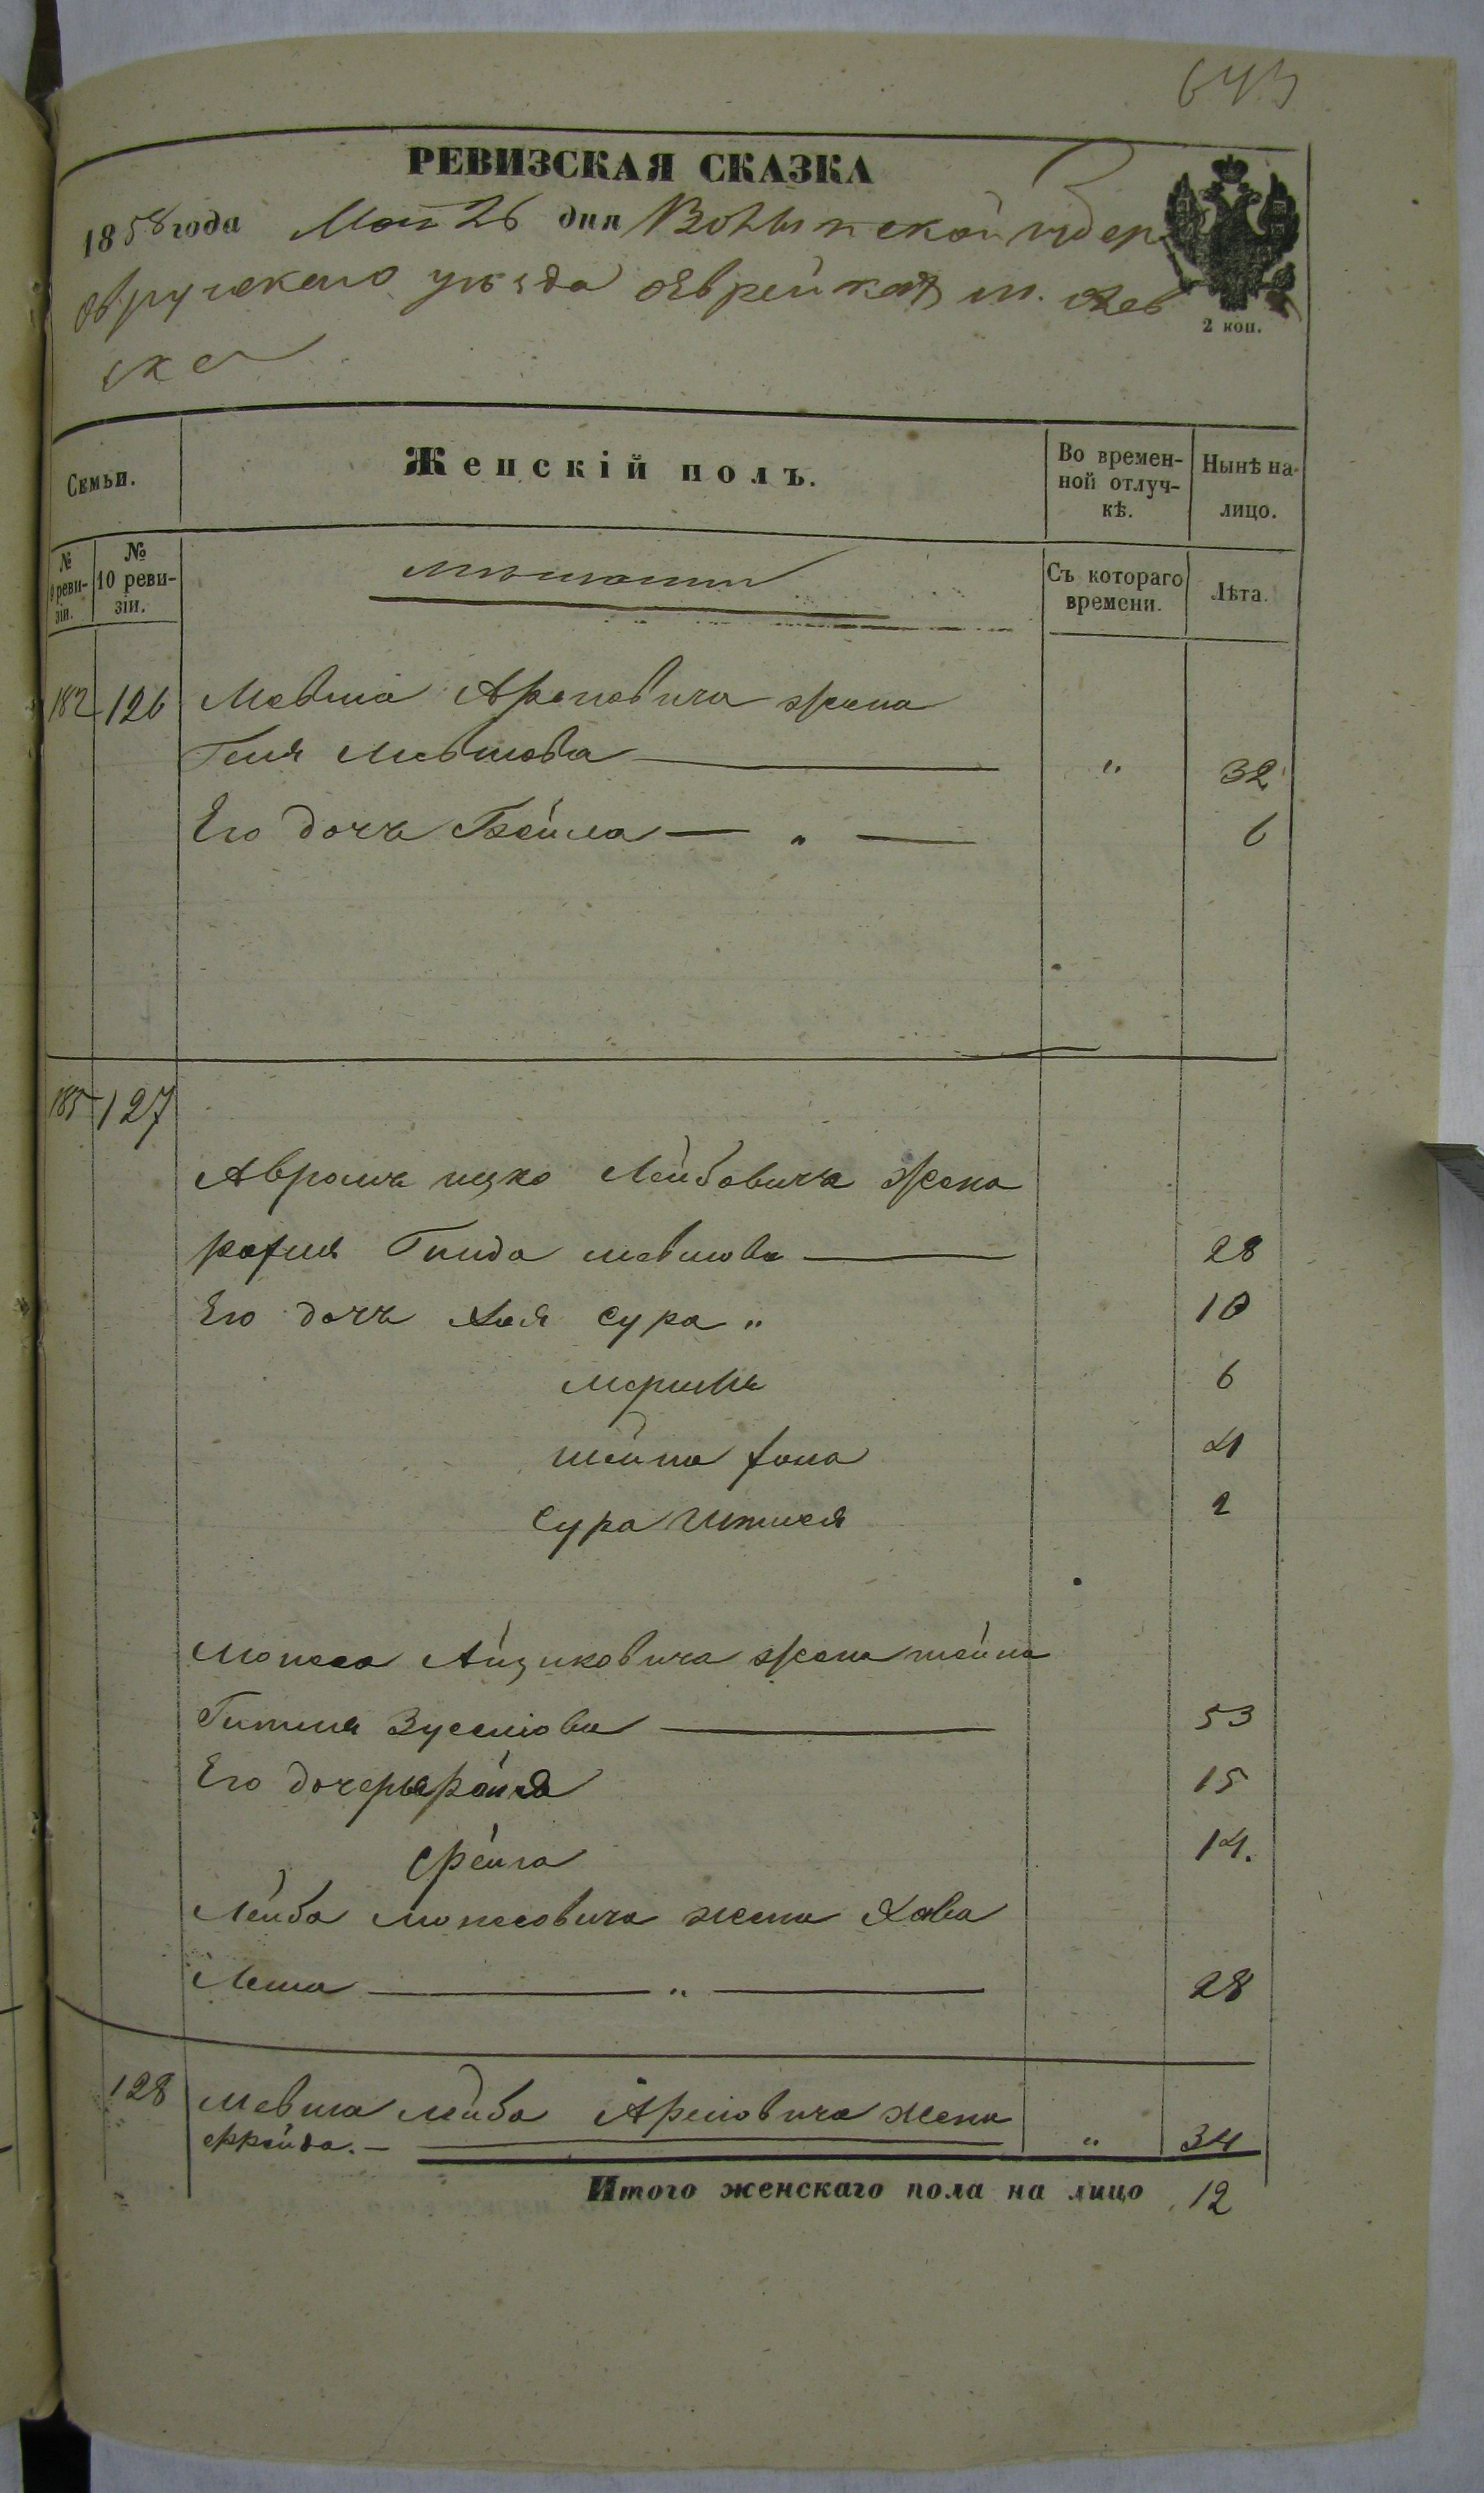 643
РЕВИЗСКАЯ СКАЗКА
1858 года Мая 26 дня Волынской губер
Овручскаго уѣзда Еврейкахъ м.
2 коп.
Семьи.
Женскій полъ.
Во времен-
ной отлуч-
кѣ.
Нынѣ на-
лицо.
№
9 реви-
зіи.
№
10 реви-
зіи.
мѣщанки
Съ котораго
времени.
Лѣта.
182 126 Мевша Ароновича жена
Геня Мевшова " 32
Его дочь Бейла — " — 6
185 127
Аврамъ Ицко Лейбовича жена
Гинда Мевшова 28
Его дочь Хая Сура " 10
6
Шейна 4
Сура 2
Мошко Айзиковича жена Шейна
53
Его дочеры 15
Фейга 14.
Лейба Мошковича жена Хава
Леша — " — 28
128 Мевша Лейба Ароновича жена
Фрейда. — " 34
Итого женскаго пола на лицо 12